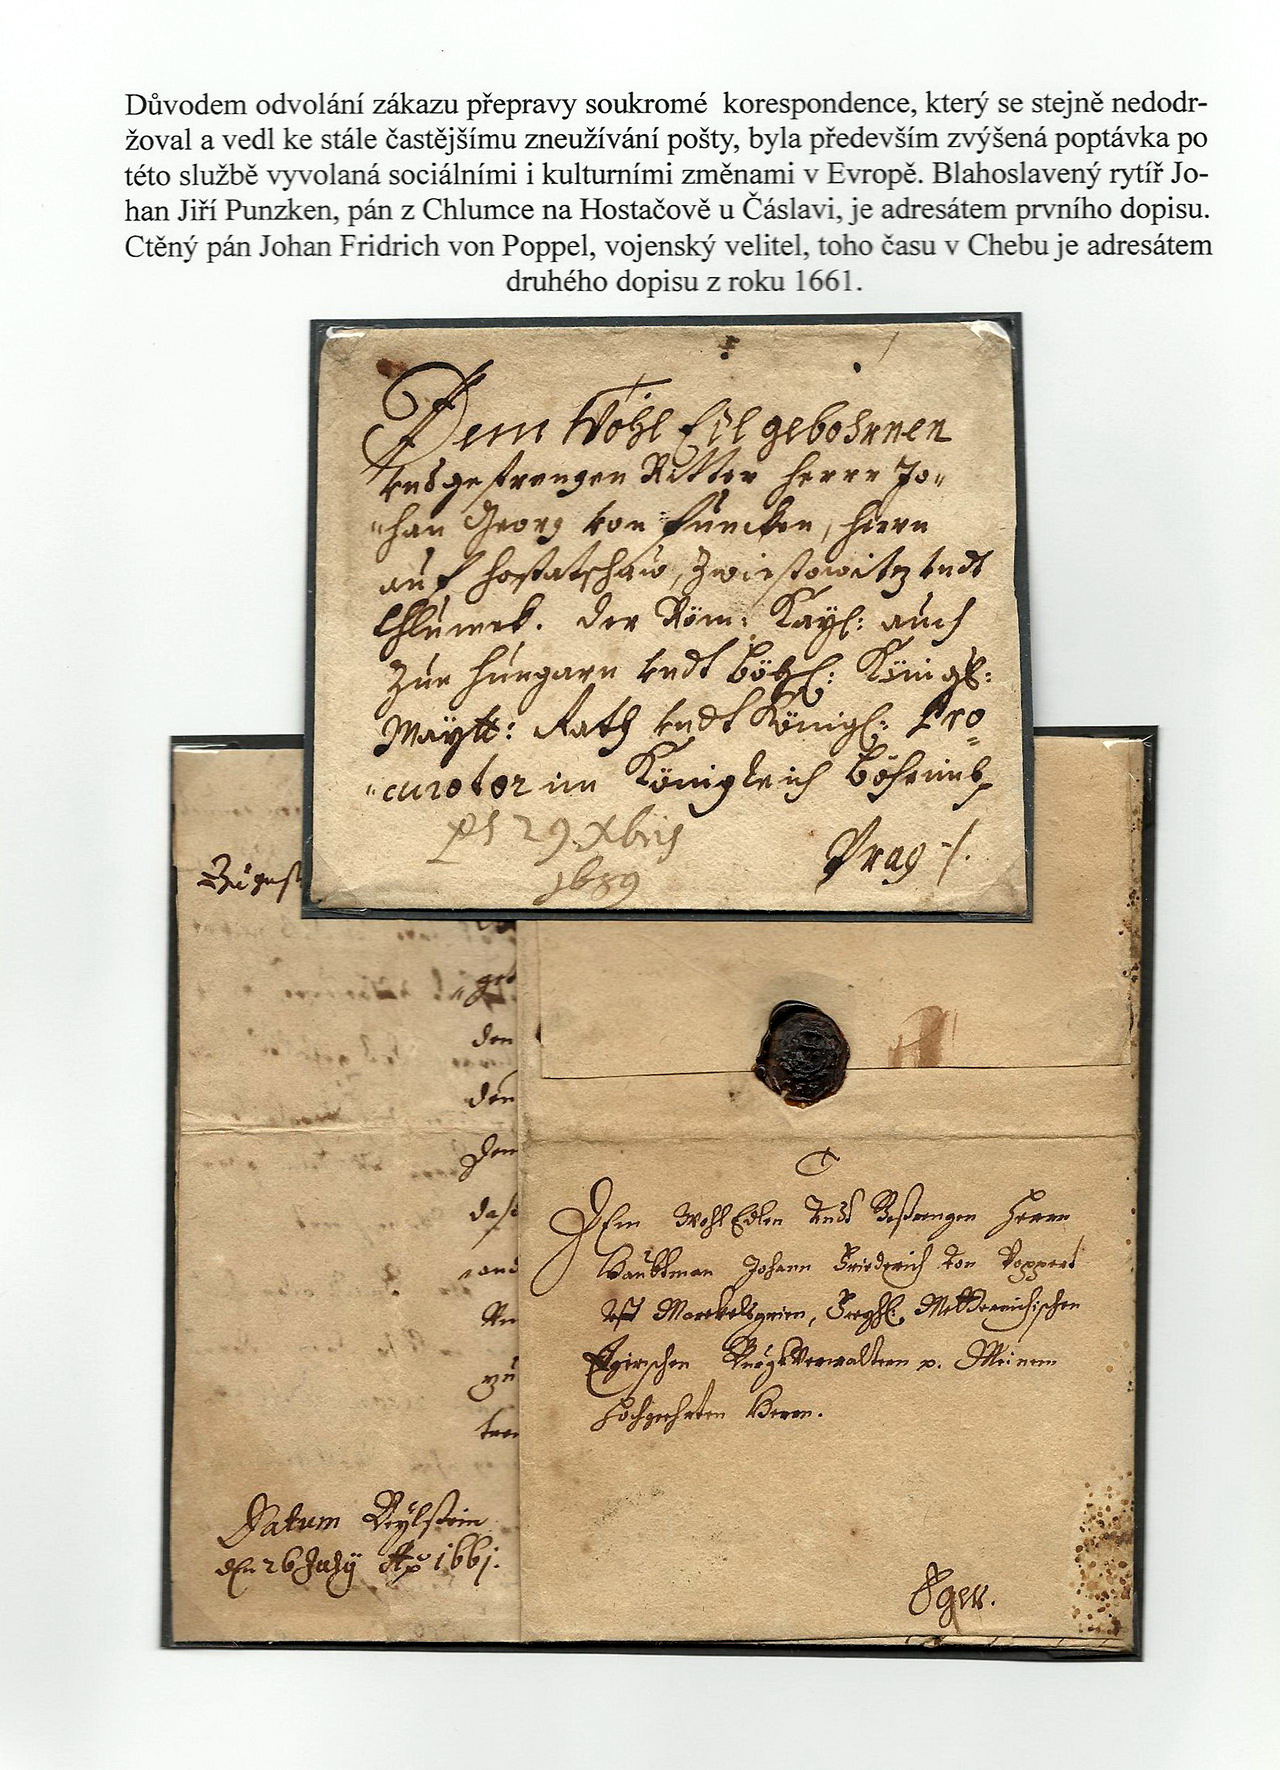 Důvodem odvolání zákazu přepravy soukromé korespondence, který se stejně nedodr-
žoval a vedl ke stále častějšímu zneužívání pošty, byla především zvýšená poptávka po
této službě vyvolaná sociálními i kulturními změnami v Evropě. Blahoslavený rytíř Jo-
han Jiří Punzken, pán z Chlumce na Hostačově u Čáslavi, je adresátem prvního dopisu.
Ctěný pán Johan Fridrich von Poppel, vojenský velitel, toho času v Chebu je adresátem
druhého dopisu z roku 1661.
Dem Wohl Edl gebohrnen
vnd gestrengen Ritter herrn Jo-
han Georg von Funcken, herrn
auf hostatschaw, Zwiestowitz vndt
Chlumek. der Röm: Kayl: auch
Zue hungarn vndt böhl: Königl:
Maytt: Rath vndt Königl: Pro-
curator im Königreich Böheimb
29. Xbris
1689
Prag
den
den
Dem
daß
zu
Dem WohlEdlen Vndt Gestrengen Herrn
Haubtman Johann Friederich von
Egerischen Meinem
hochgeehrten Herrn.
Eger.
Datum
den 26 July Ao 1661.